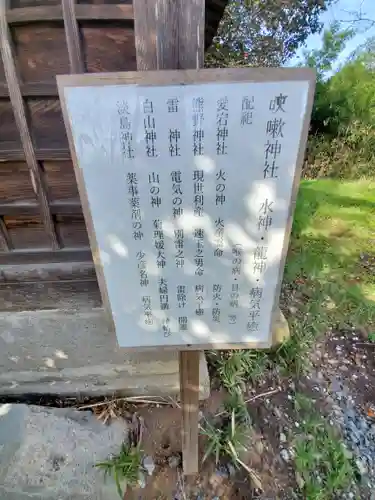 咳嗽神社 水神・龍神・病気平癒
配祀 (喉の病・目の病 等)
愛宕神社 火の神 火産霊命 防火・防災
熊野神社 現世利産 速玉之男命 病気平癒
雷神社 電気の神 別雷之神 雷除け 開運
白山神社 山の神 菊理媛大神 夫婦円満
淡島神社 薬事薬剤の神 少彦名神 病気平癒